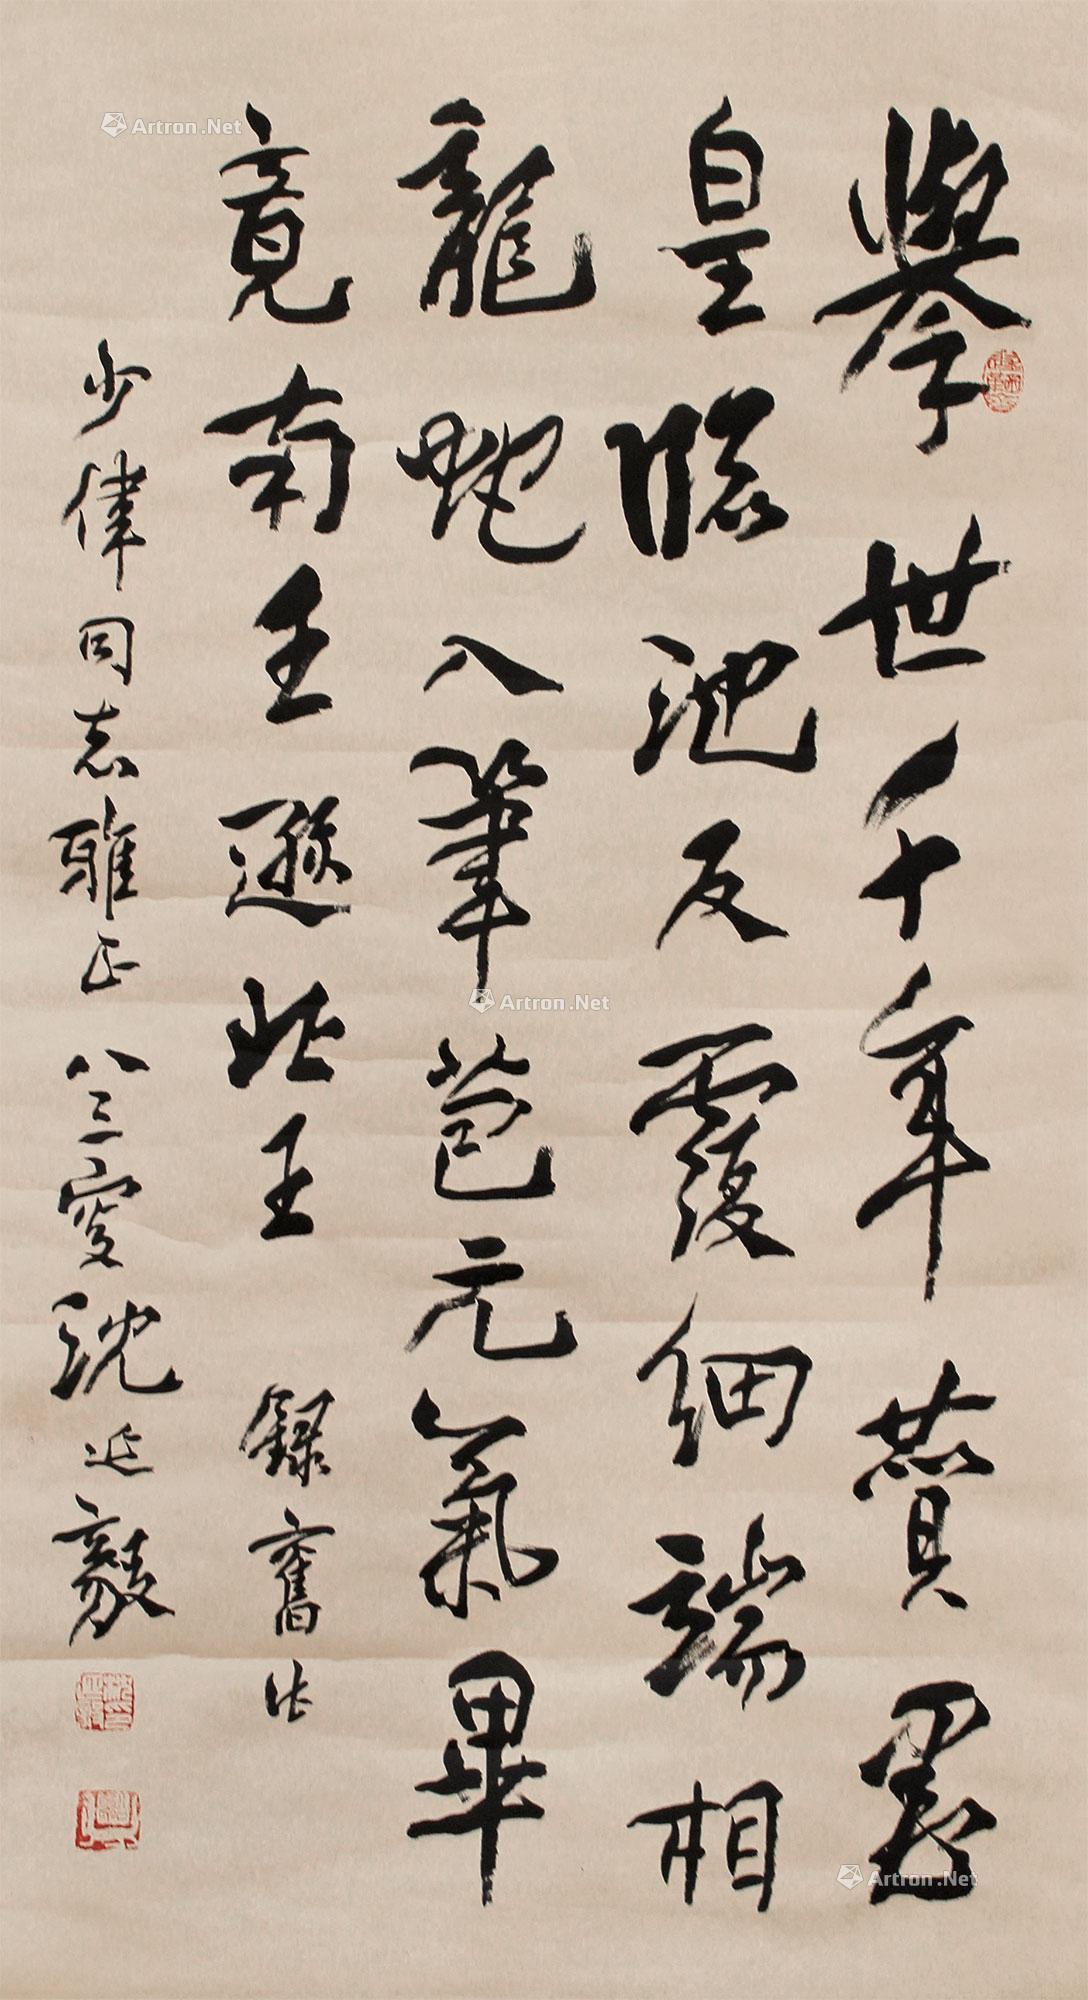 舉世千年贊墨
皇臨池反覆細端相
龍蛇入筆苞元氣畢
竟南王遜北王 錄舊作
少律同志雅正 八三叟沈延毅
Artron.Net
Artron.Net
Artron.Net